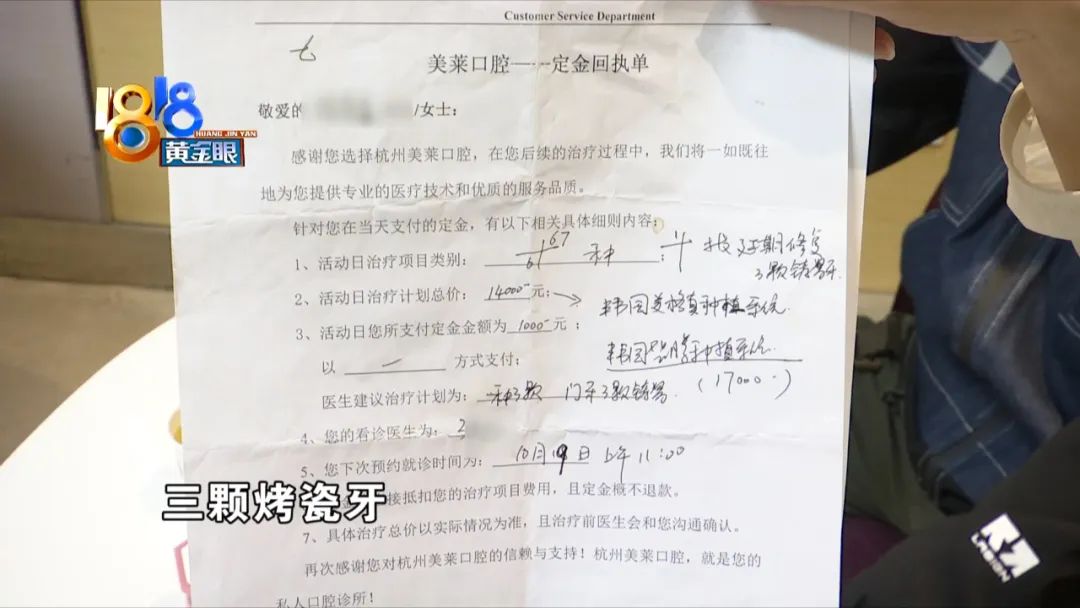 Customer Service Department
美莱口腔——定金回执单
1818
HUANG JIN YAN
黄金眼
敬爱的 /女士：
感谢您选择杭州美莱口腔，在您后续的治疗过程中，我们将一如既往
地为您提供专业的医疗技术和优质的服务品质。
针对您在当天支付的定金，有以下相关具体细则内容：
1、活动日治疗项目类别： 6 67 种 ；
延期修复
3颗烤瓷牙.
2、活动日治疗计划总价： 14000 元；
韩国美格真种植系统.
3、活动日您所支付定金金额为 1000 元；
以 方式支付；
韩国 种植系统.
医生建议治疗计划为： 种3颗 门牙3颗烤瓷.
(17000.)
4、您的看诊医生为：
5、您下次预约就诊时间为： 10月19日 上午 11:00
接抵扣您的治疗项目费用，且定金概不退款。
三颗烤瓷牙
7、具体治疗总价以实际情况为准，且治疗前医生会和您沟通确认。
再次感谢您对杭州美莱口腔的信赖与支持！杭州美莱口腔，就是您的
私人口腔诊所！